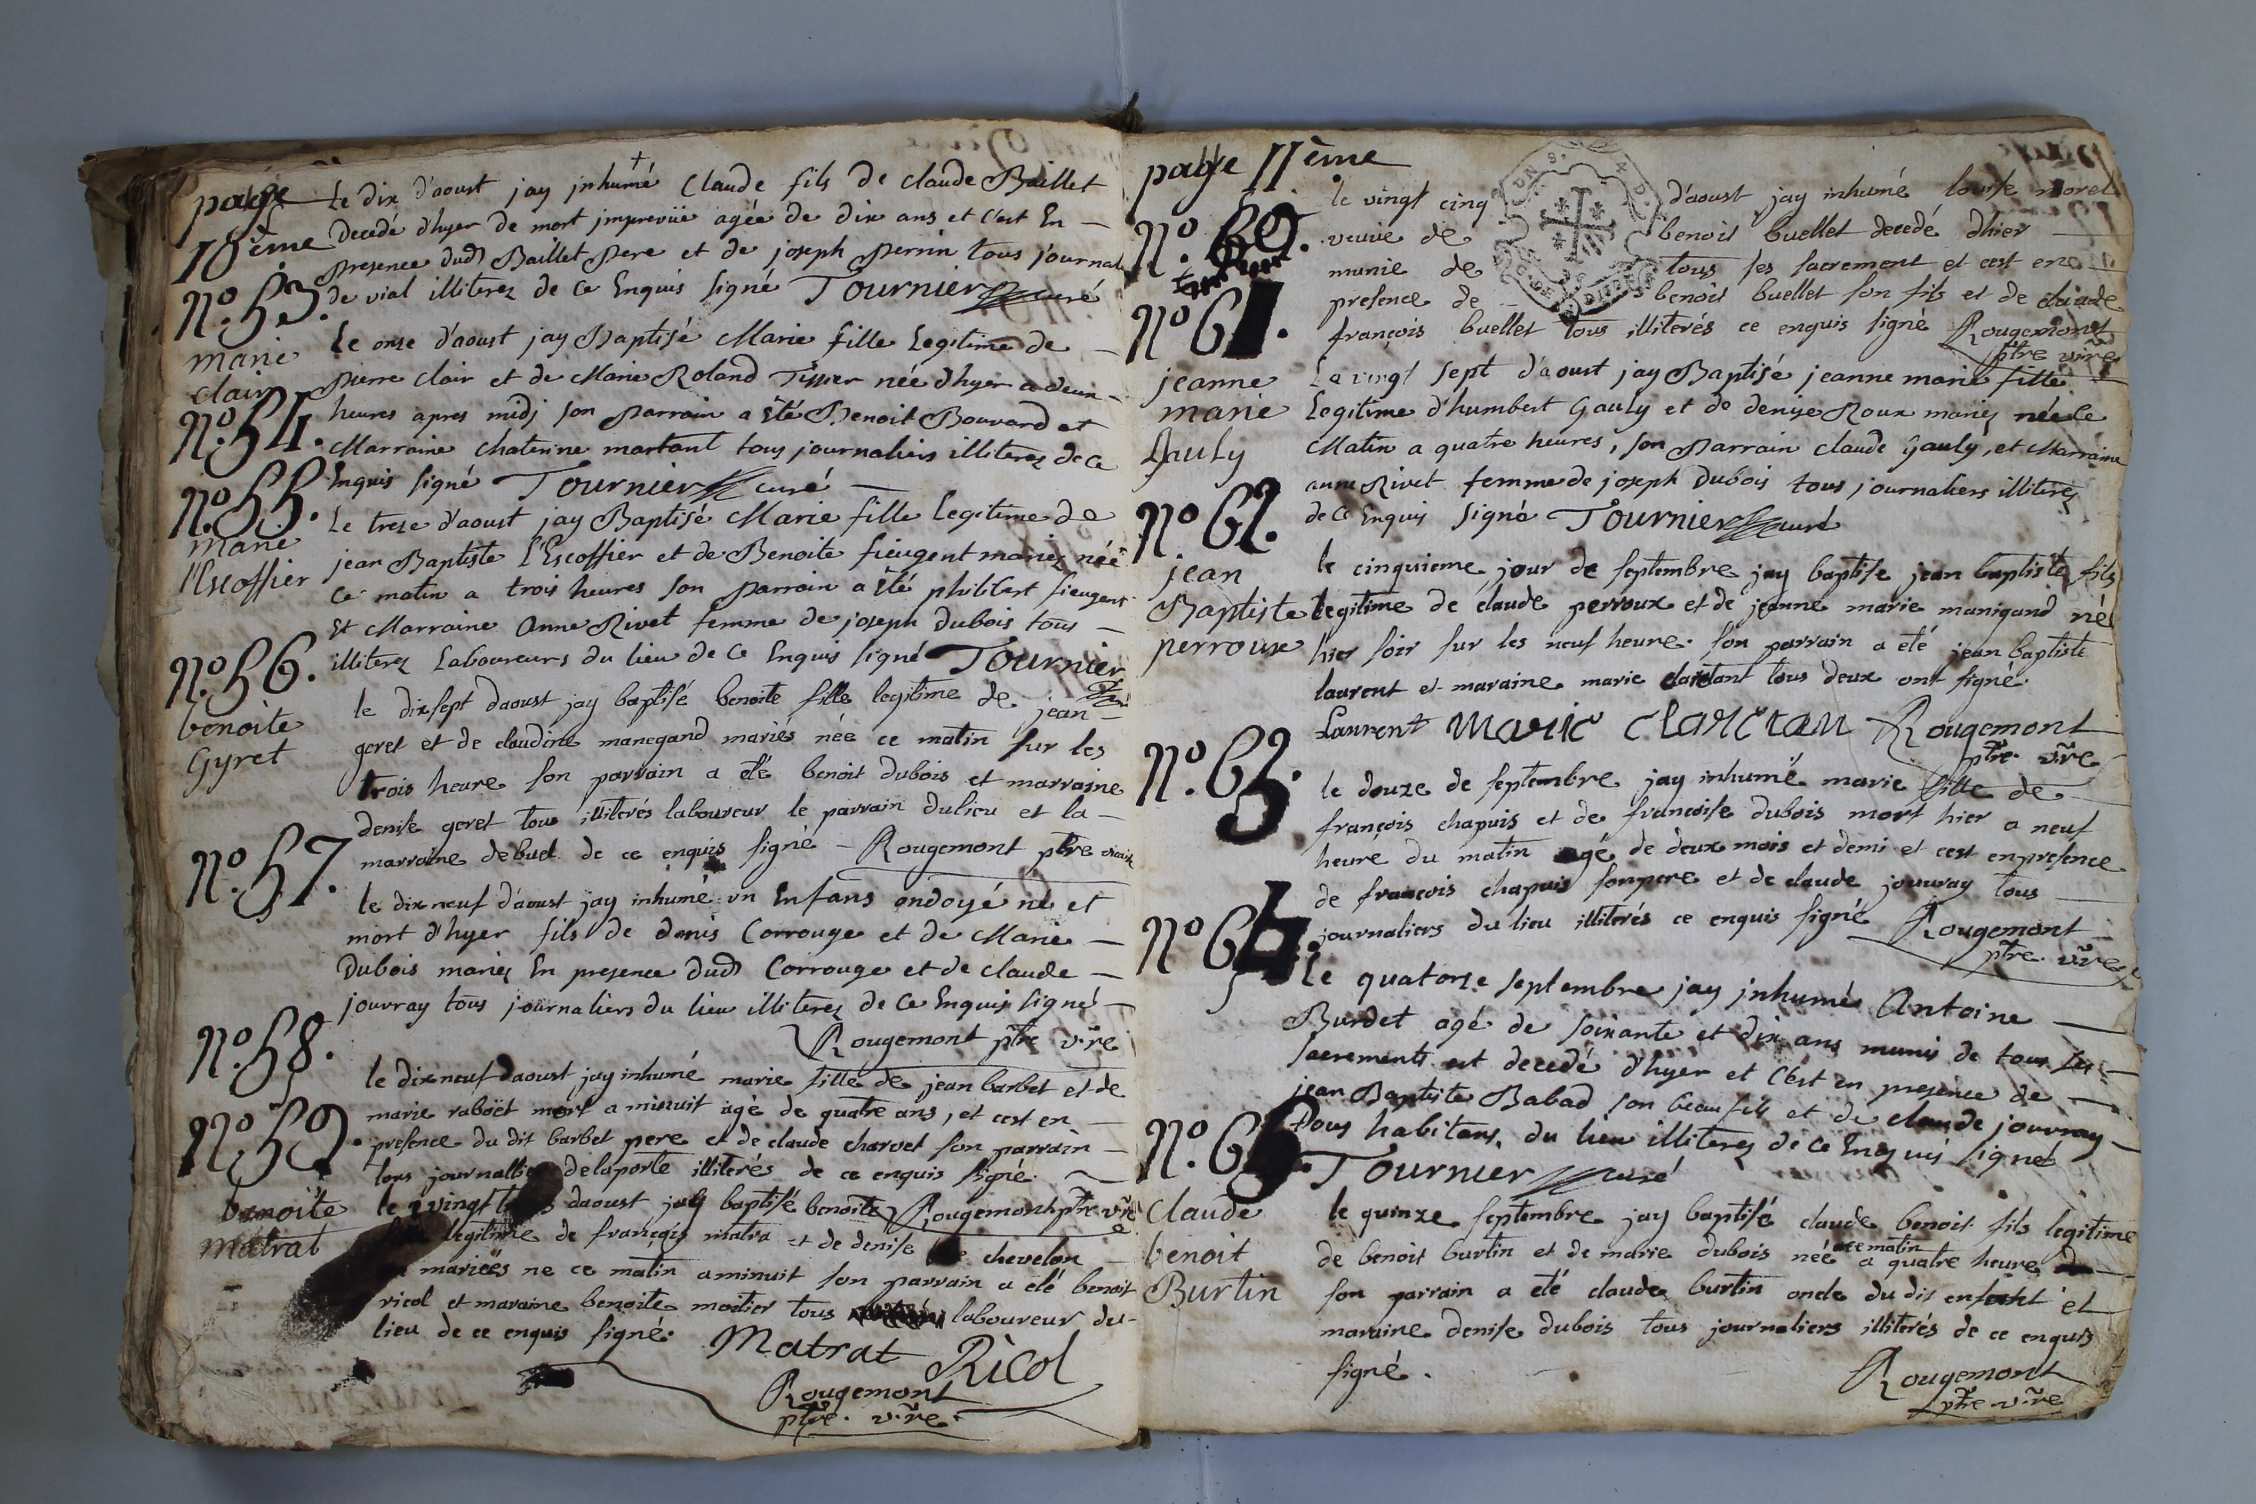 page
10ème
Le dix d'aoust jay inhumé Claude fils de claude Baillet
decedé d'hyer de mort imprevüe agée de dix ans et c'est En
presence dud Baillet Pere et de joseph perrin tous journal
de vial illiterez de ce Enquis signé Tournier curé
n.o 53.
marie
clair
Le onze d'aoust jay Baptisé Marie fille Legitime de
pierre clair et de Marie Roland Tissier née d'hyer a deux
n.o 54.
heures apres midj son Parrain a Eté Benoit Bouvard et
Marraine chaterine martant tous journaliers illiterez de ce
Enquis signé Tournier curé
n.o 55.
marie
l'Escoffier
Le treze d'aoust jay Baptisé Marie fille legitime de
jean Baptiste l'Escoffier et de Benoite fieugent mariez née
ce matin a trois heures son parrain a Eté philibert fieugent
Et Marraine Anne Rivet femme de joseph dubois tous
illiterez Laboureurs du lieu de ce Enquis signé Tournier
n.o 56.
benoite
Gyret
le dixsept daoust jay baptisé benoite fille legitime de jean
geret et de claudine manegand mariés née ce matin sur les
trois heure son parrain a eté benoit dubois et marraine
denise geret tous illiterés laboureur le parrain du lieu et la
marraine de buel de ce enquis signé Rougemont ptre vicaire
n.o 57.
le dix neuf d'aoust jay inhumé un Enfans ondoyé né et
mort d'hyer fils de denis Corrouge et de Marie
Dubois mariez En presence dud Corrouge et de claude
jouvray tous journaliers du lieu illiterez de ce Enquis signé
Rougemont ptre vre
n.o 58.
le dixneuf daoust jay inhumé marie fille de jean barbet et de
marie raboët mort a minuit agé de quatre ans, et cest en
n.o 59.
presence du dit barbet pere et de claude charvet son parrain
tous de laporte illiterés de ce enquis signé
benoite
matrat
le vingt daoust jay baptisé benoite Rougemont ptre vre
legitime de françois matra et de denise chevelon
mariées ne ce matin a minuit son parrain a eté benoit
ricol et maraine benoite moitier tous laboureur du
lieu de ce enquis signé.
Matrat Ricol
Rougemont
ptre. vre.
page 11ème
n.o 60.
le vingt cinq d'aoust jay inhumé louise morel
veuve de benoit buellet decedé dhier
munie de tous ses sacrement et cest en
presence de benoit buellet son fils et de claude
n.o 61.
françois buellet tous illiterés ce enquis signé Rougemont
ptre vre
jeanne
marie
Gauly
Le vingt sept d'aoust jay Baptisé jeanne marie fille
Legitime d'humbert Gauly et de denise Roux mariez née ce
Matin a quatre heures, son Parrain claude Gauly, et Marraine
anne Rivet femme de joseph Dubois tous journaliers illiterez
de ce Enquis signé Tournier curé
n.o 62.
jean
Baptiste
perroux
le cinquieme jour de septembre jay baptise jean baptiste fils
legitime de claude perroux et de jeanne marie manigand né
hier soir sur les neuf heure. son parrain a eté jean baptiste
laurent et maraine marie tous deux ont signé.
Laurent Marie Rougemont
ptre. vre
n.o 63.
le douze de septembre jay inhumé marie fille de
françois chapuis et de francoise dubois mort hier a neuf
heure du matin agé de deux mois et demi et cest en presence
de francois chapuis son pere et de claude jouvray tous
journaliers du lieu illiterés ce enquis signé Rougemont
ptre. vre
n.o 64.
Le quatorze septembre jay inhumé Antoine
Burdet agé de soixante et dix ans munis de tous ses
sacrements est decedé d'hyer et c'est en presence de
jean Baptiste Babad son beau fils et de claude jouvray
Tous habitans du lieu illiterez de ce Enquis signé
Tournier curé
n.o 65.
Claude
benoit
Burtin
le quinze septembre jay baptisé claude benoit fils legitime
de benoit burtin et de marie dubois née ce matin a quatre heure
son parrain a eté claude burtin oncle du dit enfant et
maraine denise dubois tous journaliers illiterés de ce enquis
signé.
Rougemont
ptre. vre